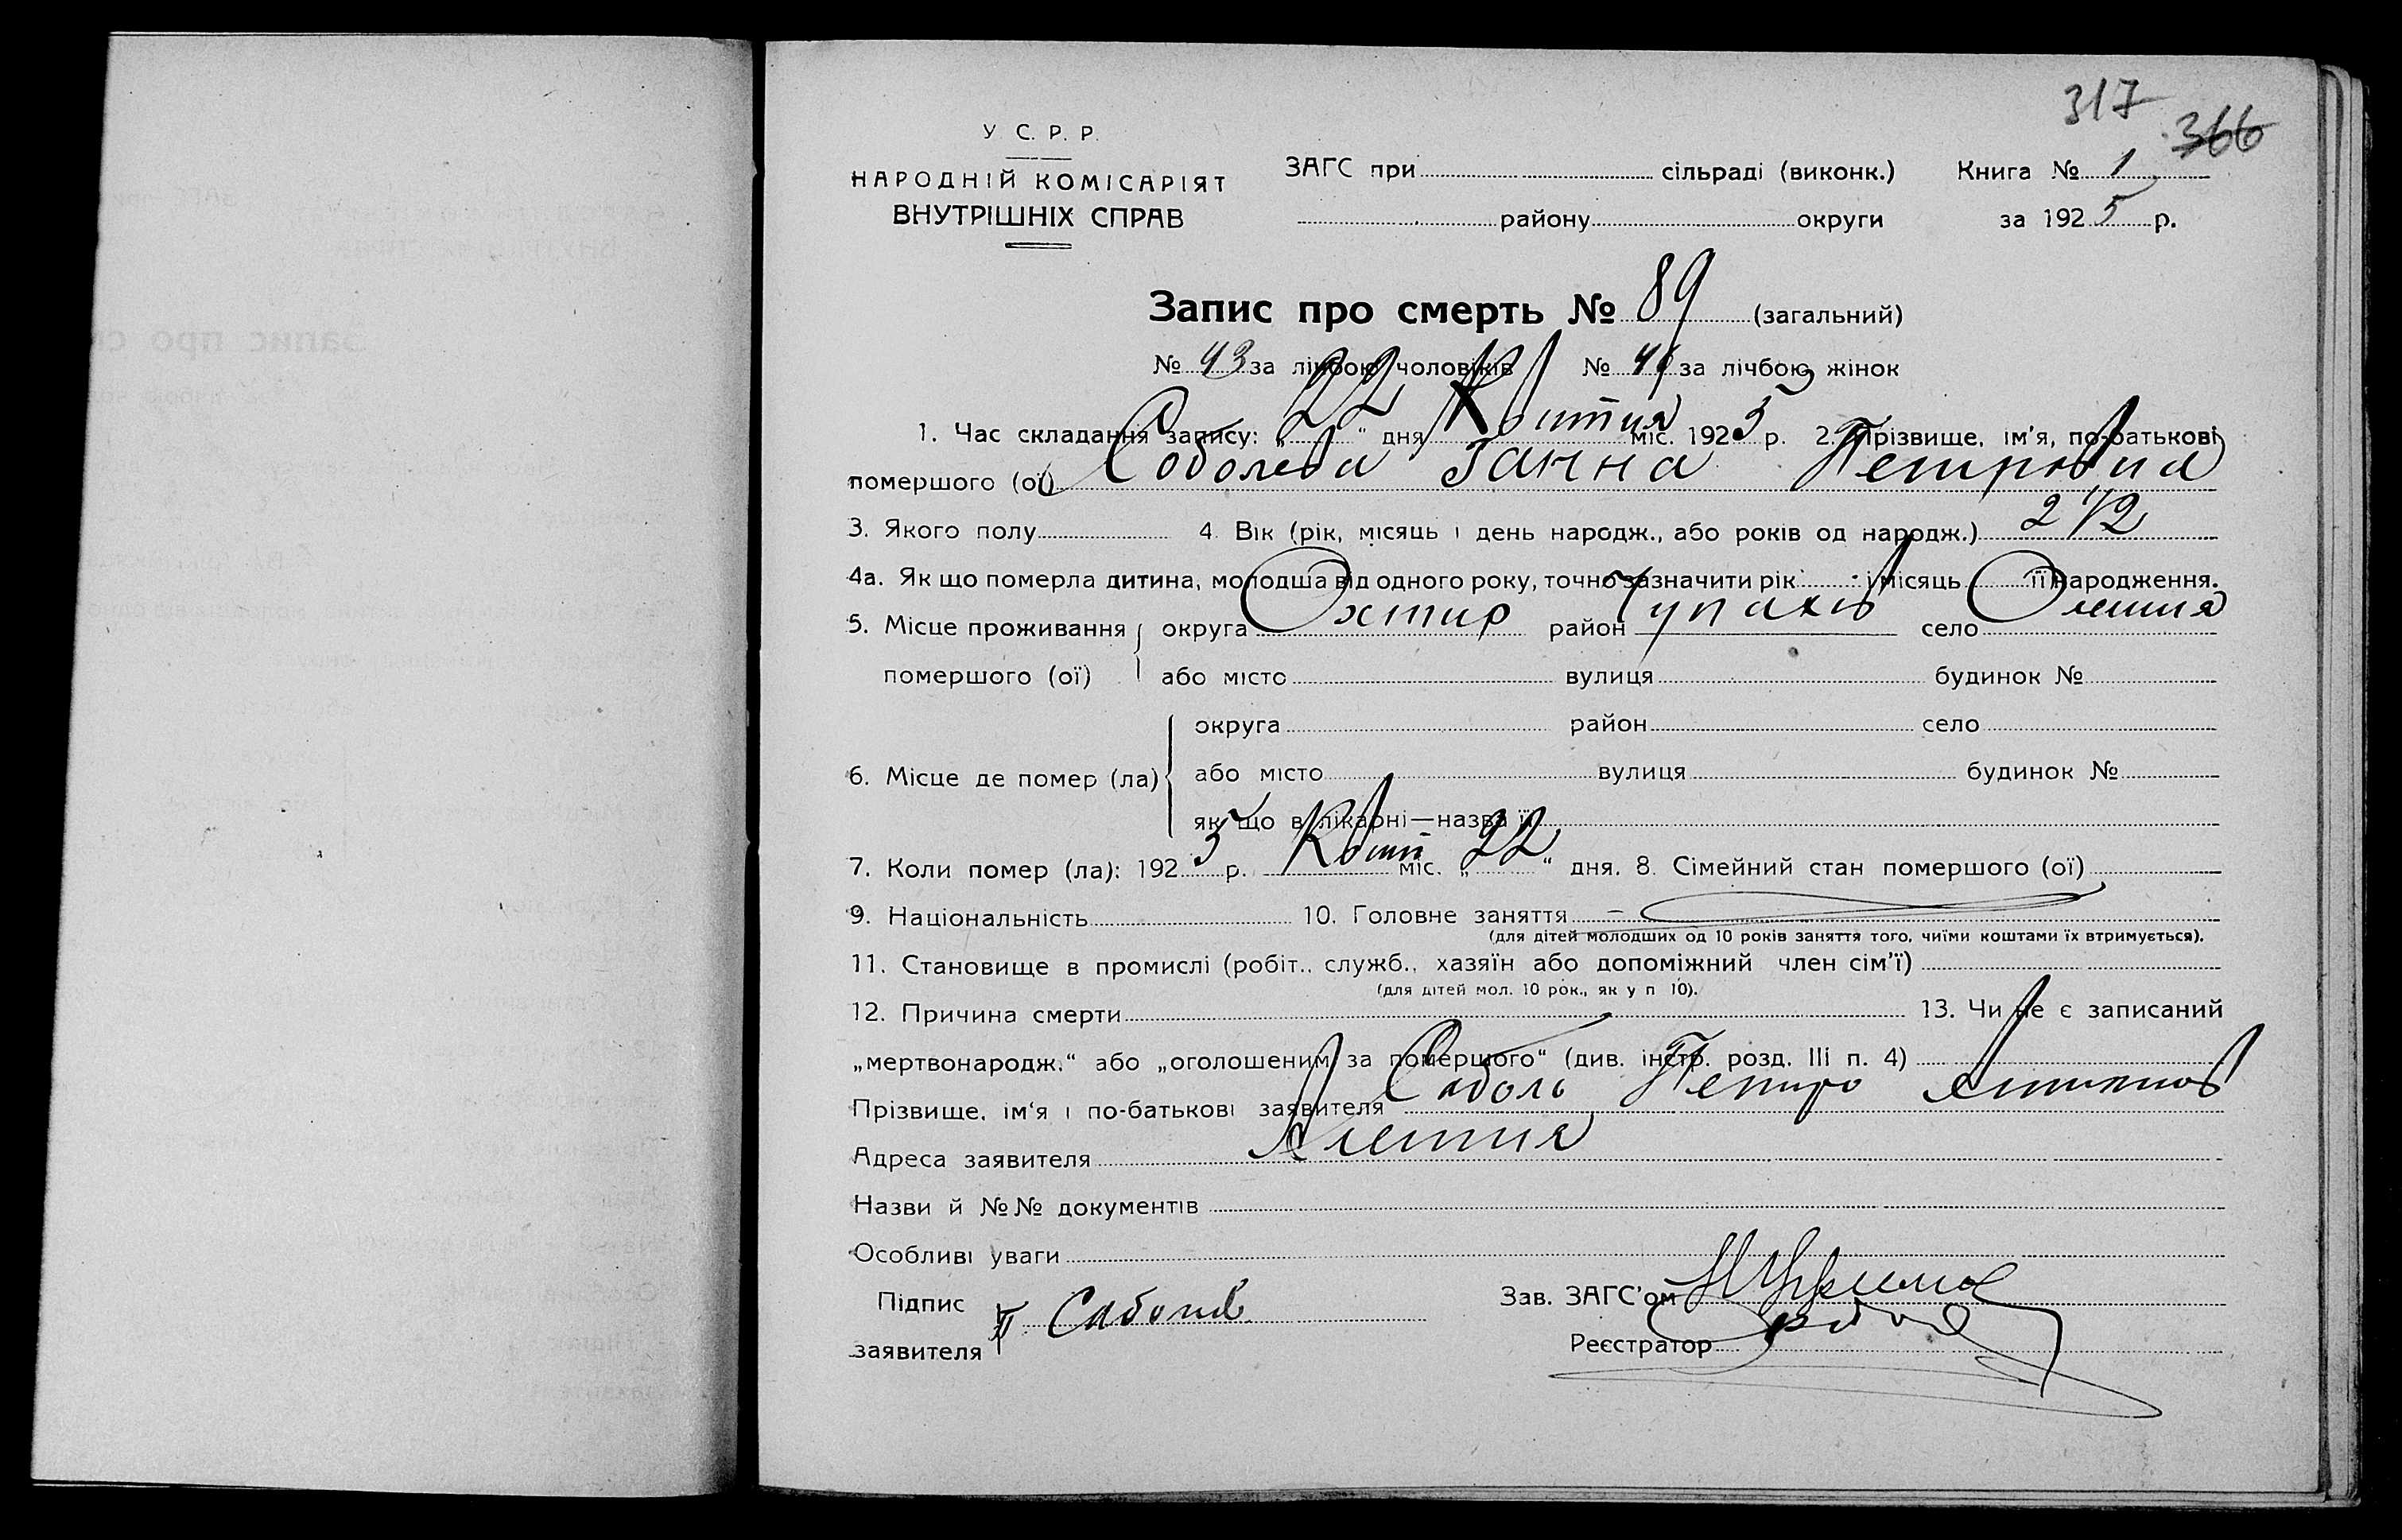 317
366
У С. Р. Р.
НАРОДНІЙ КОМІСАРІЯТ
ВНУТРІШНІХ СПРАВ
ЗАГС при сільраді (виконк.)
району округи
Книга № 1
за 1925 р.
Запис про смерть № 89 (загальний)
№ 43 за лічбою чоловіків № 46 за лічбою жінок
1. Час складання запису: „22“ дня Квітня міс. 1925 р. 2. Прізвище, ім'я, по-батькові
помершого (ої) Соболева Ганна Петровна
3. Якого полу 4. Вік (рік, місяць і день народж., або років од народж.) 2 1/2
4а. Як що померла дитина, молодша від одного року, точно зазначити рік і місяць її народження.
5. Місце проживання округа Охтир район Чупахів село Олешня
помершого (ої) або місто вулиця будинок №
округа район село
6. Місце де помер (ла) або місто вулиця будинок №
як що в лікарні—назва її
7. Коли помер (ла): 1925 р. Квіт міс. „22“ дня. 8. Сімейний стан помершого (ої)
9. Національність 10. Головне заняття —
(для дітей молодших од 10 років заняття того, чиїми коштами їх втримується).
11. Становище в промислі (робіт., служб., хазяїн або допоміжний член сім'ї)
(для дітей мол. 10 рок., як у п 10).
12. Причина смерти 13. Чи не є записаний
„мертвонародж.“ або „оголошеним за помершого“ (див. інстр. розд. III п. 4)
Прізвище, ім'я і по-батькові заявителя Соболь Петро
Адреса заявителя Алешня
Назви й №№ документів
Особливі уваги
Підпис
заявителя П Соболів
Зав. ЗАГС'ом
Реєстратор